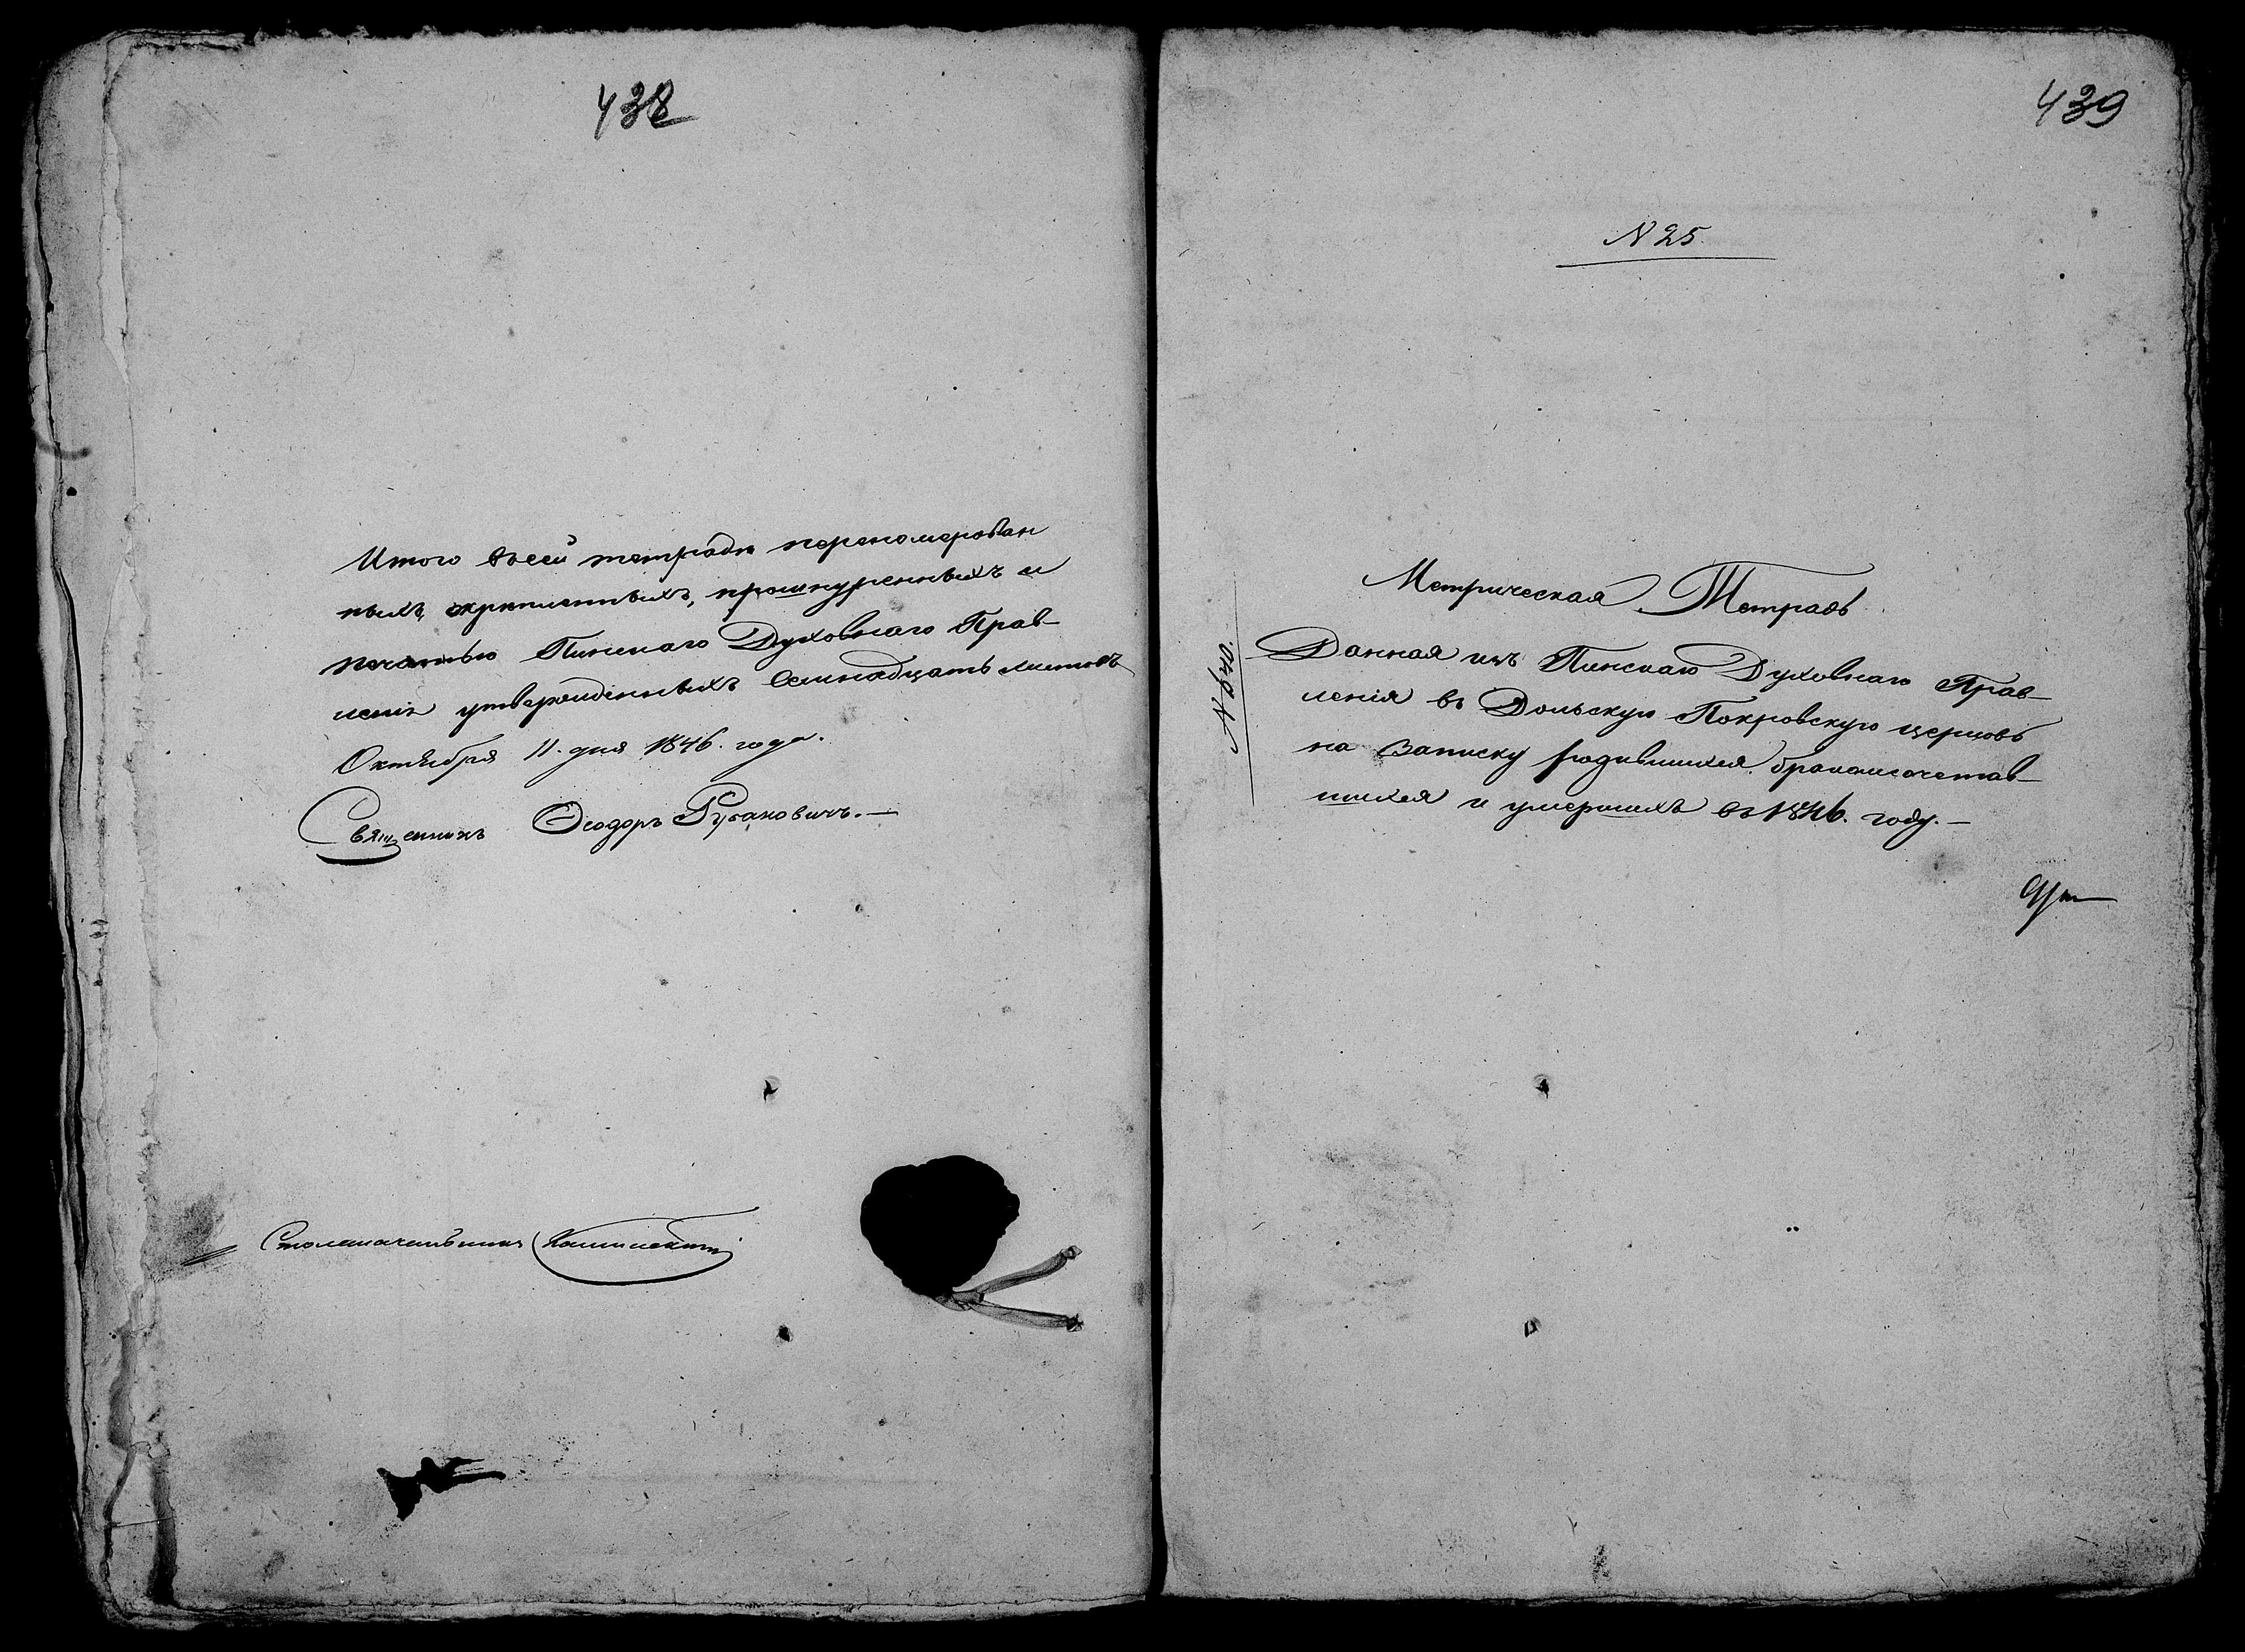 438
Итого въ сей тетради перенумерован
ныхъ, скрепленныхъ, прошнуренныхъ и
печатью Пинскаго Духовнаго Прав-
ленія утвержденныхъ семнадцать листовъ
Октября 11. дня 1846. года.
Священникъ Ѳеодоръ Русаковичъ.—
Столоначальникъ
439
N 25.
N 840.
Метрическая Тетрадь
Данная изъ Пинскаго Духовнаго Прав-
ленія въ Дольскую Покровскую церковь
на записку родившихся, бракомсочетав-
шихся и умершихъ въ 1846. году.—